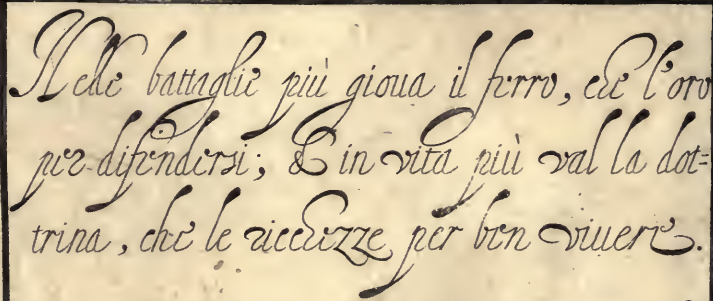 Nelle battaglie più gioua il ferro, che l'oro
per difendersi; & in vita più val la dot=
trina, che le ricchezze per ben viuere.